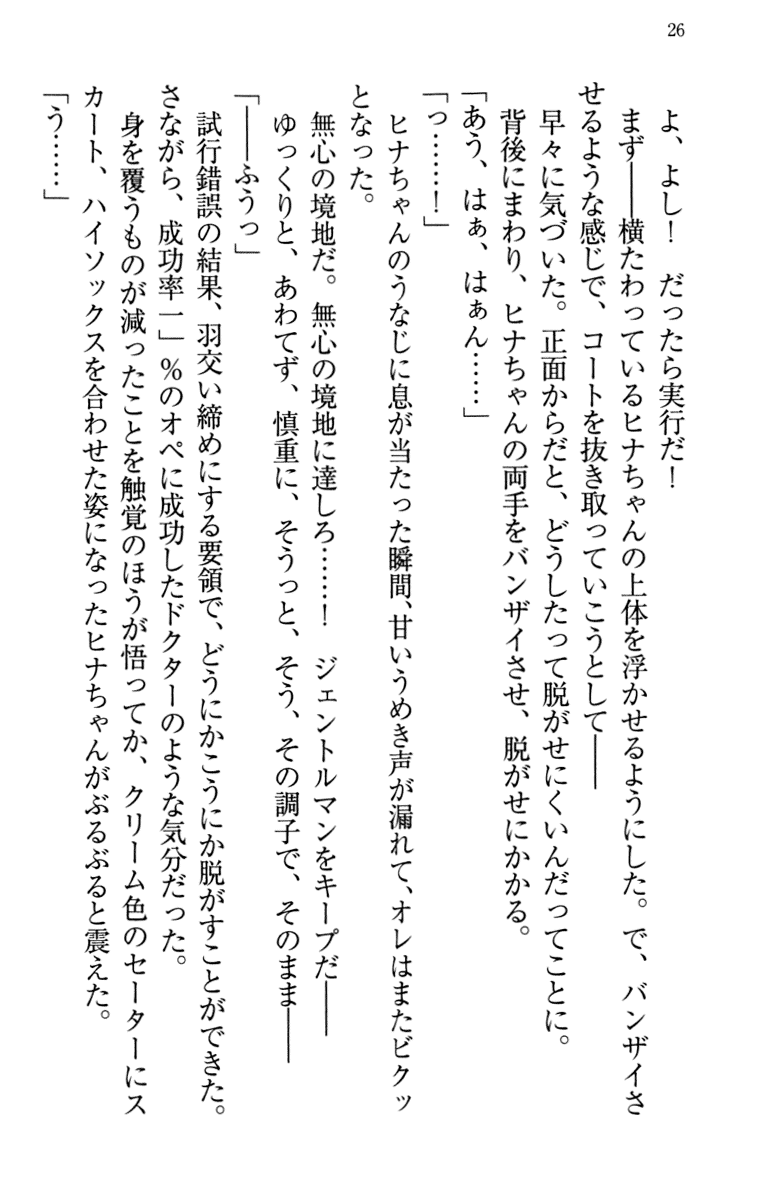 26
よ、よし！　だったら実行だ！
まず――横たわっているヒナちゃんの上体を浮かせるようにした。で、バンザイさ
せるような感じで、コートを抜き取っていこうとして――
早々に気づいた。正面からだと、どうしたって脱がせにくいんだってことに。
背後にまわり、ヒナちゃんの両手をバンザイさせ、脱がせにかかる。
「あう、はぁ、はぁん……」
「っ……！」
ヒナちゃんのうなじに息が当たった瞬間、甘いうめき声が漏れて、オレはまたビクッ
となった。
無心の境地だ。無心の境地に達しろ……！　ジェントルマンをキープだ――
ゆっくりと、あわてず、慎重に、そうっと、そう、その調子で、そのまま――
「――ふうっ」
試行錯誤の結果、羽交い締めにする要領で、どうにかこうにか脱がすことができた。
さながら、成功率一」％のオペに成功したドクターのような気分だった。
身を覆うものが減ったことを触覚のほうが悟ってか、クリーム色のセーターにス
カート、ハイソックスを合わせた姿になったヒナちゃんがぶるぶると震えた。
「う……」